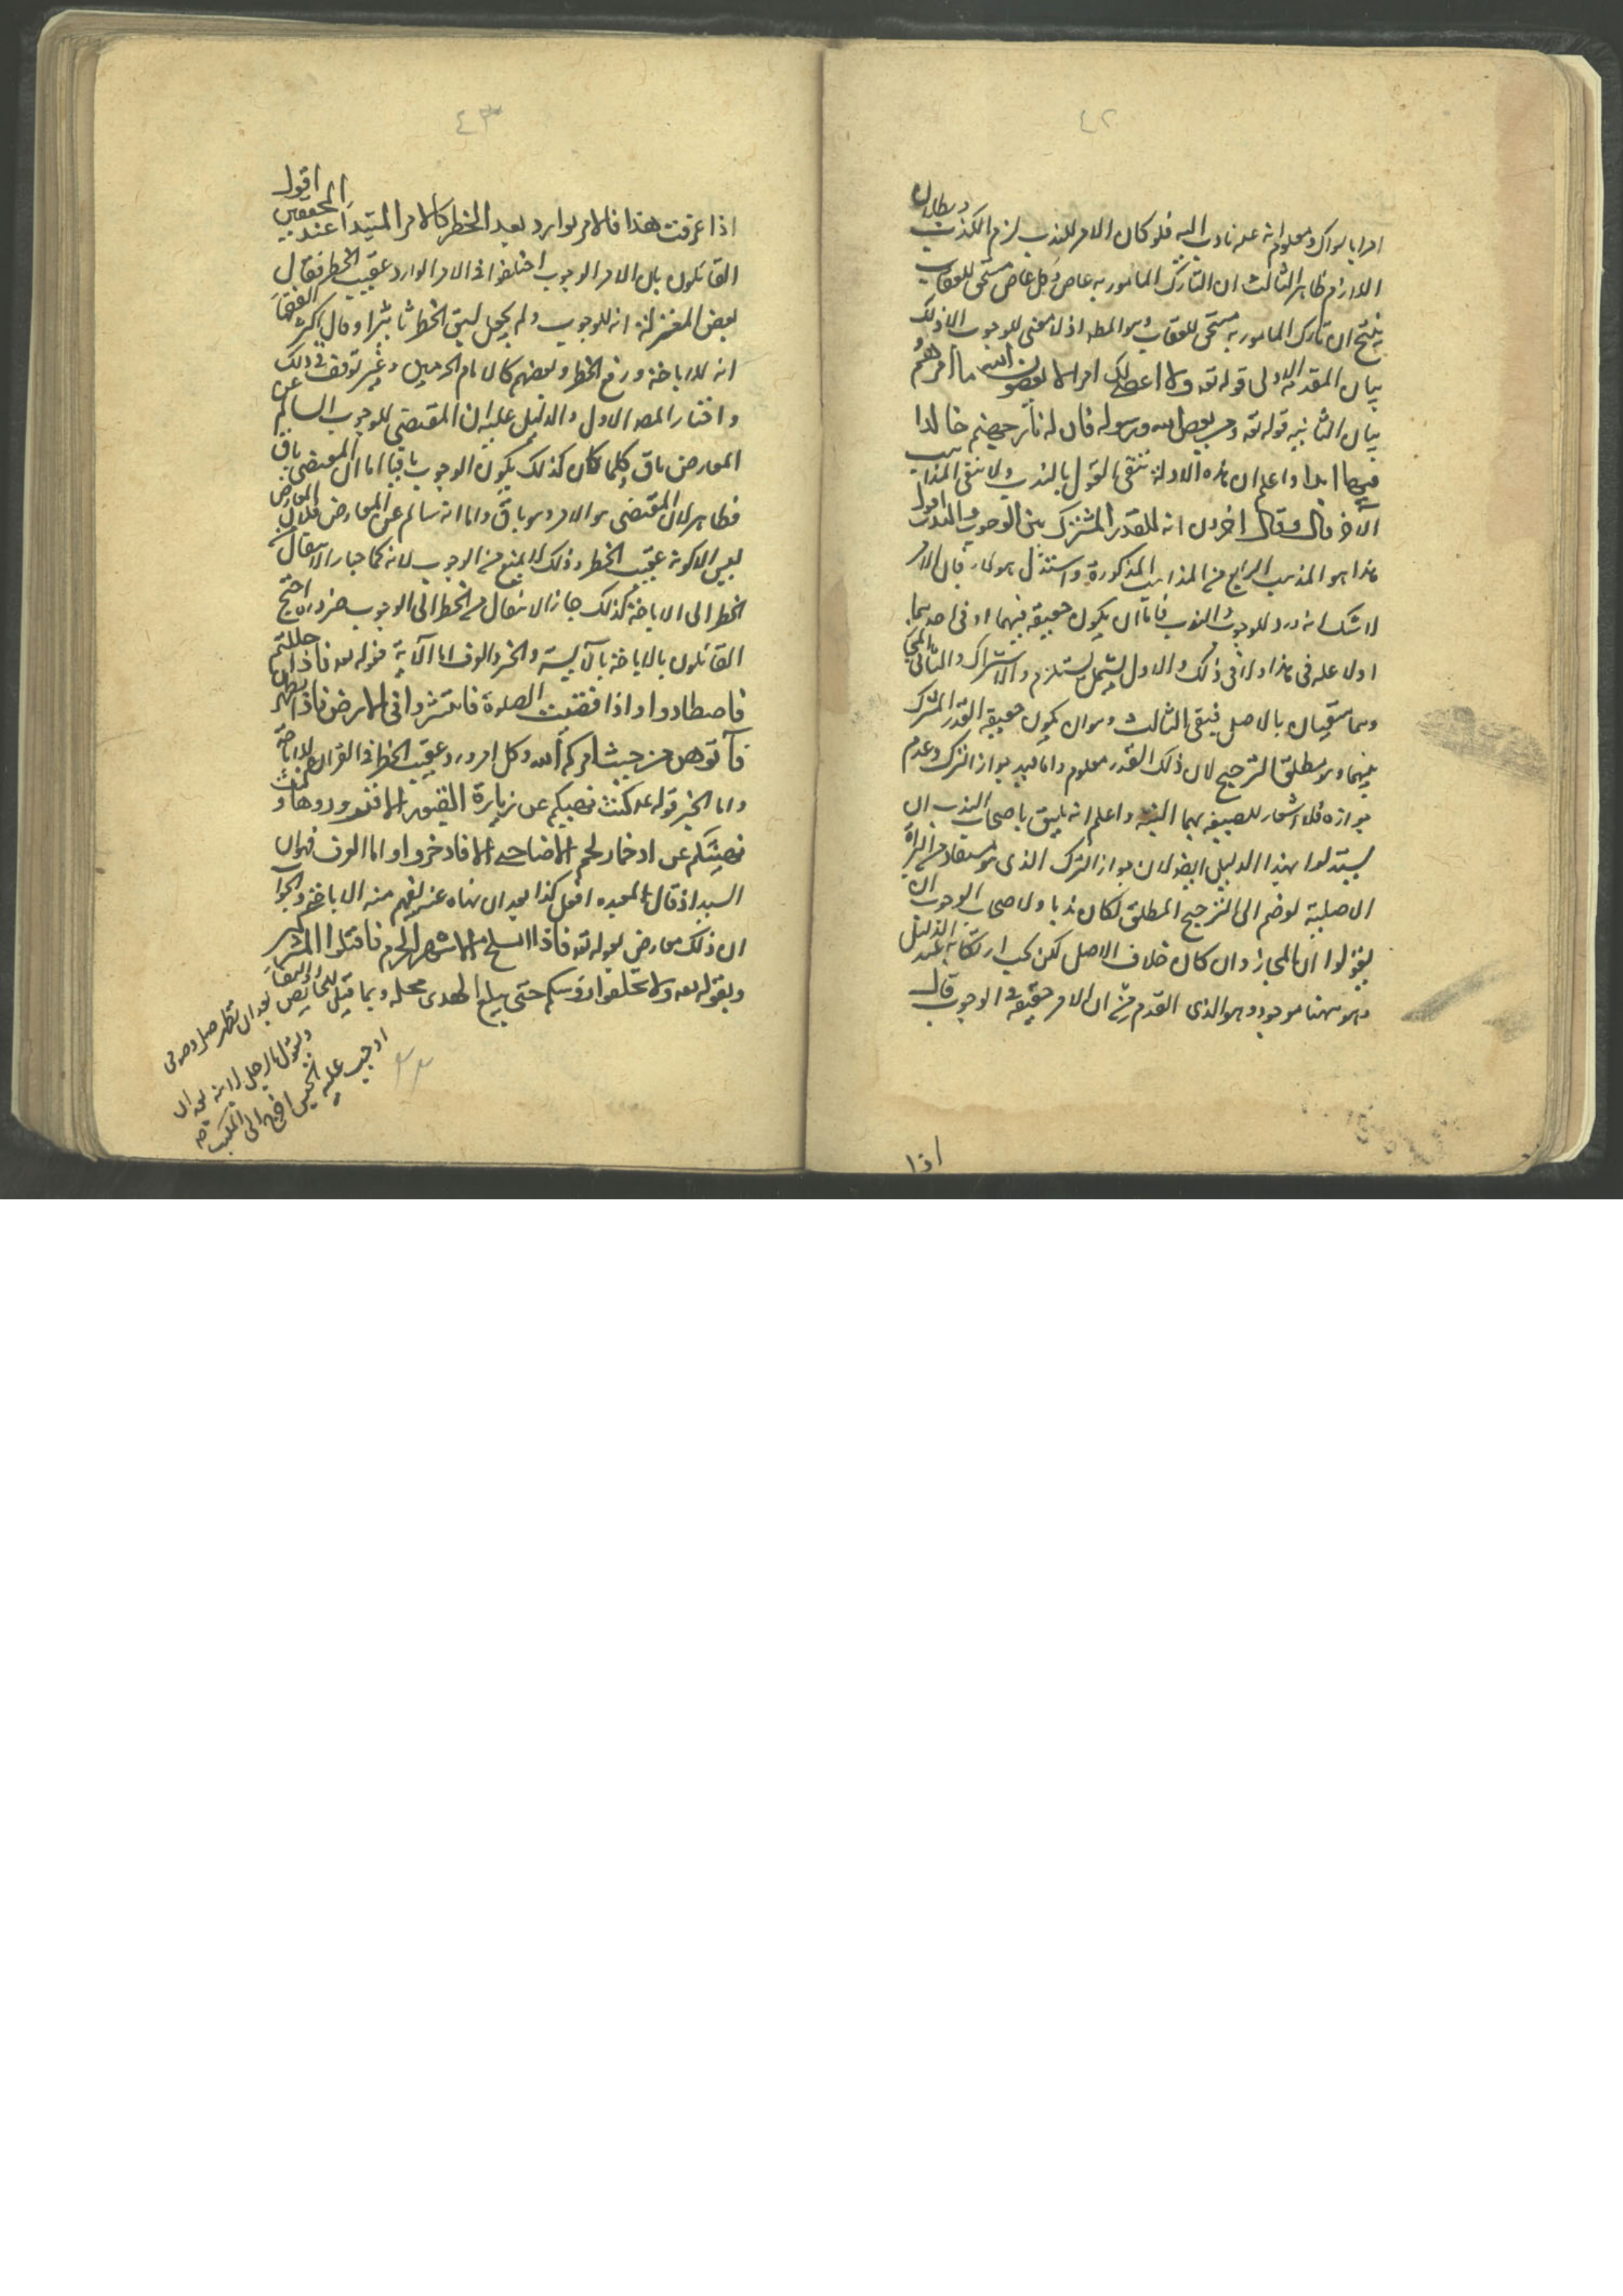 ٤٢
امرا بالسواك ومعلوم انه عليه نادب اليه فلو كان الامر للندب لزم الكذب وبطلان
اللازم ظاهر الثالث ان التارك المامور به عاص وكل عاص مستحق للعقاب
ينتج ان تارك المامور به مستحق للعقاب وهو المط اذ لا معنى للوجوب الا ذلك
بيان المقدمة الاولى قوله تع ولا اعصى لك امرا لا يعصون الله ما امرهم و
بيان الثانيه قوله تع ومن يعص الله ورسوله فان له نار جهنم خالدا
فيها ابدا واعلم ان هذه الادلة تنفى القول بالندب ولا تنفى المذاهب
الاخر قال وقال اخرون انه للقدر المشترك بين الوجوب والندب اقول
هذا هو المذهب الرابع من المذاهب المذكورة واستدل هؤلاء بان الامر
لا شك انه ورد للوجوب والندب فاما ان يكون حقيقة فيهما او فى احدهما
اولا على فى هذا ولا فى ذلك والاول يستلزم الاشتراك والثانى المجاز
وهما منفيان بالاصل فبقى الثالث وهو ان يكون حقيقة القدر المشترك
بينهما وهو مطلق الترجيح لان ذلك القدر معلوم واما قيد جواز الترك وعدم
جوازه فلا اشعار للصيغه بهما البته واعلم انه يليق باصحاب الندب ان
يستدلوا بهذا الدليل ايضا لان جواز الترك الذى هو مستفاد من البراة
الاصلية لو ضم الى الترجيح المطلق لكان ندبا ولاصحاب الوجوب ان
يقولوا ان المجاز وان كان خلاف الاصل لكن يجب ارتكابه عند الدليل
وهو ههنا موجود وهو الذى القدم من ان الامر حقيقة فى الوجوب قال
اذا
٤٣
اذا عرفت هذا فالامر الوارد بعد الحظر كالامر المبتدا عند المحققين اقول
القائلون بان الامر للوجوب اختلفوا فى الامر الوارد عقيب الحظر فقال
بعض المعتزلة انه للوجوب ولم يجعل لسبق الحظر تاثيرا وقال اكثر الفقهاء
انه للاباحة ورفع الحظر وبعضهم كالامام الحرمين وغيره توقف فى ذلك
واختار المصـ الاول والدليل عليه ان المقتضى للوجوب السالم عن
المعارض باق وكلما كان كذلك يكون الوجوب باقيا اما ان المقتضى باق
فظاهر لان المقتضى هو الامر وهو باق واما انه سالم عن المعارض فلان المعارض
ليس الا كونه عقيب الحظر وذلك لا يمنع من الوجوب لانه كما جاز الانتقال من
الحظر الى الاباحة كذلك جاز الانتقال من الحظر الى الوجوب ضرورة احتج
القائلون بالاباحة بالاية والخبر والعرف اما الآية فقوله تع فاذا حللتم
فاصطادوا واذا قضيت الصلوة فانتشروا فى الارض فاذا تطهرن
فآتوهن من حيث امركم الله وكل امر ورد عقيب الحظر فى القران للاباحة
واما الخبر قوله عم كنت نهيتكم عن زيارة القبور الا فزوروها وكنت
نهيتكم عن ادخار لحم الاضاحى الا فادخروا واما العرف فهو ان
السيد اذ قال لعبده افعل كذا بعد ان نهاه عنه يفهم منه الاباحة والجواب
ان ذلك معارض بقوله تع فاذا انسلخ الاشهر الحرم فاقتلوا المشركين
وبقوله تع ولا تحلقوا رؤسكم حتى يبلغ الهدى محله وبما قيل للحايض والنفساء
بعد ان تطهر صلى وصومى
وبقول الرجل لابنه بعد ان
اوجب عليه الحبس اخرج الى المكتب
صه